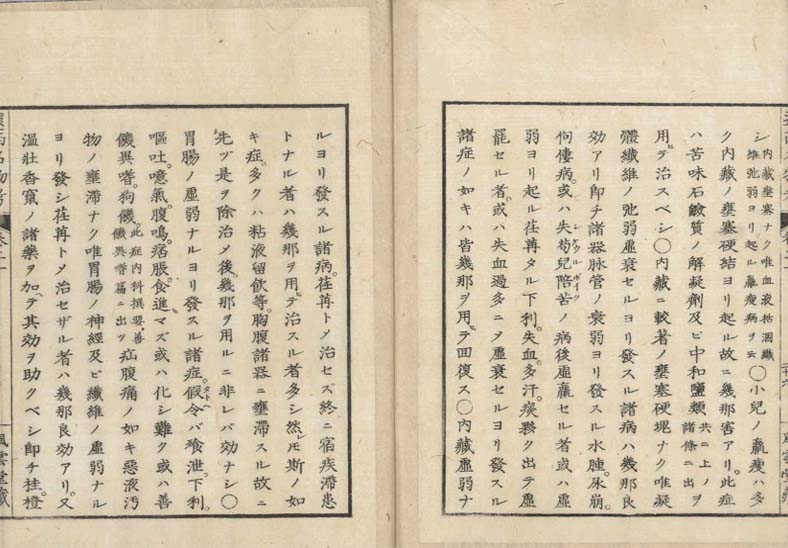 シ 内藏壅塞ナク唯血液枯涸纖
維弛弱ヨリ起ル羸瘦病ヲ云 〇小兒ノ羸瘦ハ多
ク内藏ノ壅塞硬結ヨリ起ル故ニ幾那害アリ。此症
ハ苦味石鹼質ノ解凝劑及ビ中和鹽類 共ニ上ノ
諸條ニ出ツ ヲ
用テ治スベシ〇内藏ニ較著ノ壅塞硬塊ナク唯凝
體纖維ノ弛弱虛衰セルヨリ發スル諸病ハ幾那良
効アリ即チ諸器脉管ノ衰弱ヨリ發スル水腫。尿崩。
佝僂病。或ハ失苟兒陪苦ノ病後虛羸セル者或ハ虛
弱ヨリ起ル荏苒タル下利。失血。多汗。痰夥ク出テ虛
罷セル者。或ハ失血過多ニメ虛衰セルヨリ發スル
諸症ノ如キハ皆幾那ヲ用テ回復ス〇内藏虛弱ナ
ルヨリ發スル諸病。荏苒トメ治セズ終ニ宿疾滯患
トナル者ハ幾那ヲ用テ治スル者多シ然レモ斯ノ如
キ症。多クハ粘液留飮等。胸腹諸器ニ壅滯スル故ニ
先ヅ是ヲ除治メ後。幾那ヲ用ルニ非レバ効ナシ〇
胃腸ノ虛弱ナルヨリ發スル諸症。假令バ飱泄下利。
嘔吐。噫氣。腹鳴。痞脹。食進マズ或ハ化シ難ク或ハ善
饑異嗜。狗饑 此症内科撰要。善
饑異嗜篇ニ出ツ 疝腹痛ノ如キ惡液汚
物ノ壅滯ナク唯胃腸ノ神經及ビ纖維ノ虛弱ナル
ヨリ發シ荏苒トメ治セザル者ハ幾那良効アリ。又
溫壯香竄ノ諸藥ヲ加テ其効ヲ助クベシ即チ桂橙
風雲堂藏